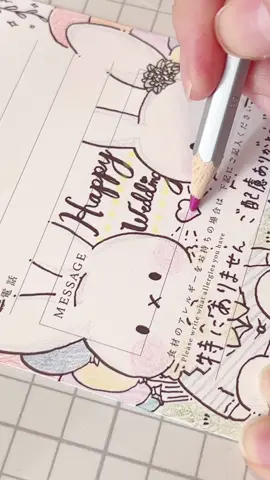 Happy
Wedding
MESSAGE
電話
食材のアレルギーをお持ちの場合は下記にご記入ください
Please write what allergies you have
特にありません ご配慮ありがと